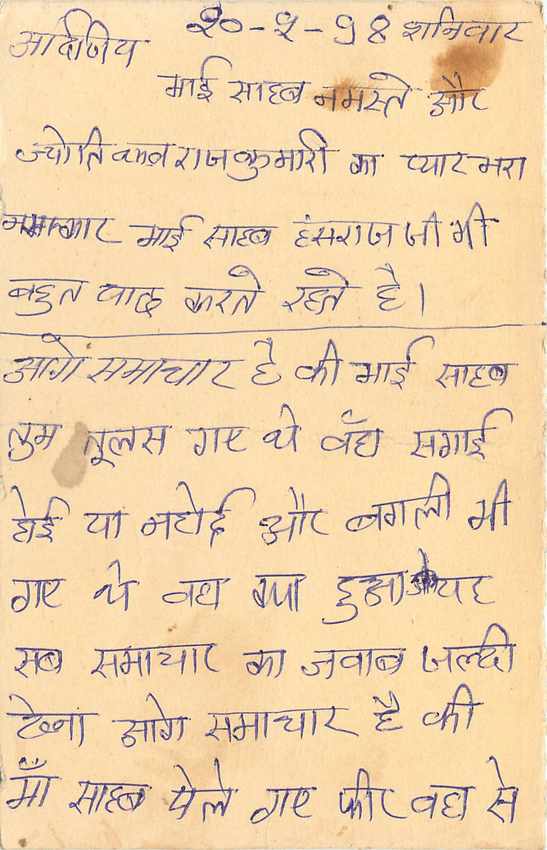 २०-५-९४ शनिवार
आदणिय
भाई साहब नमस्ते और
ज्योति राजकुमारी का प्यार भरा
नमस्कार भाई साहब हंसराज जी भी
बहुत याद करते रहते है।
आगे समाचार है की भाई साहब
तुम तूलस गए थे वँहा सगाई
होई या नहोई और बगली भी
गए थे वहा क्या हुआ यह
सब समाचार का जवाब जल्दी
देना आगे समाचार है की
माँ साहब चेले गए फीर वहा से